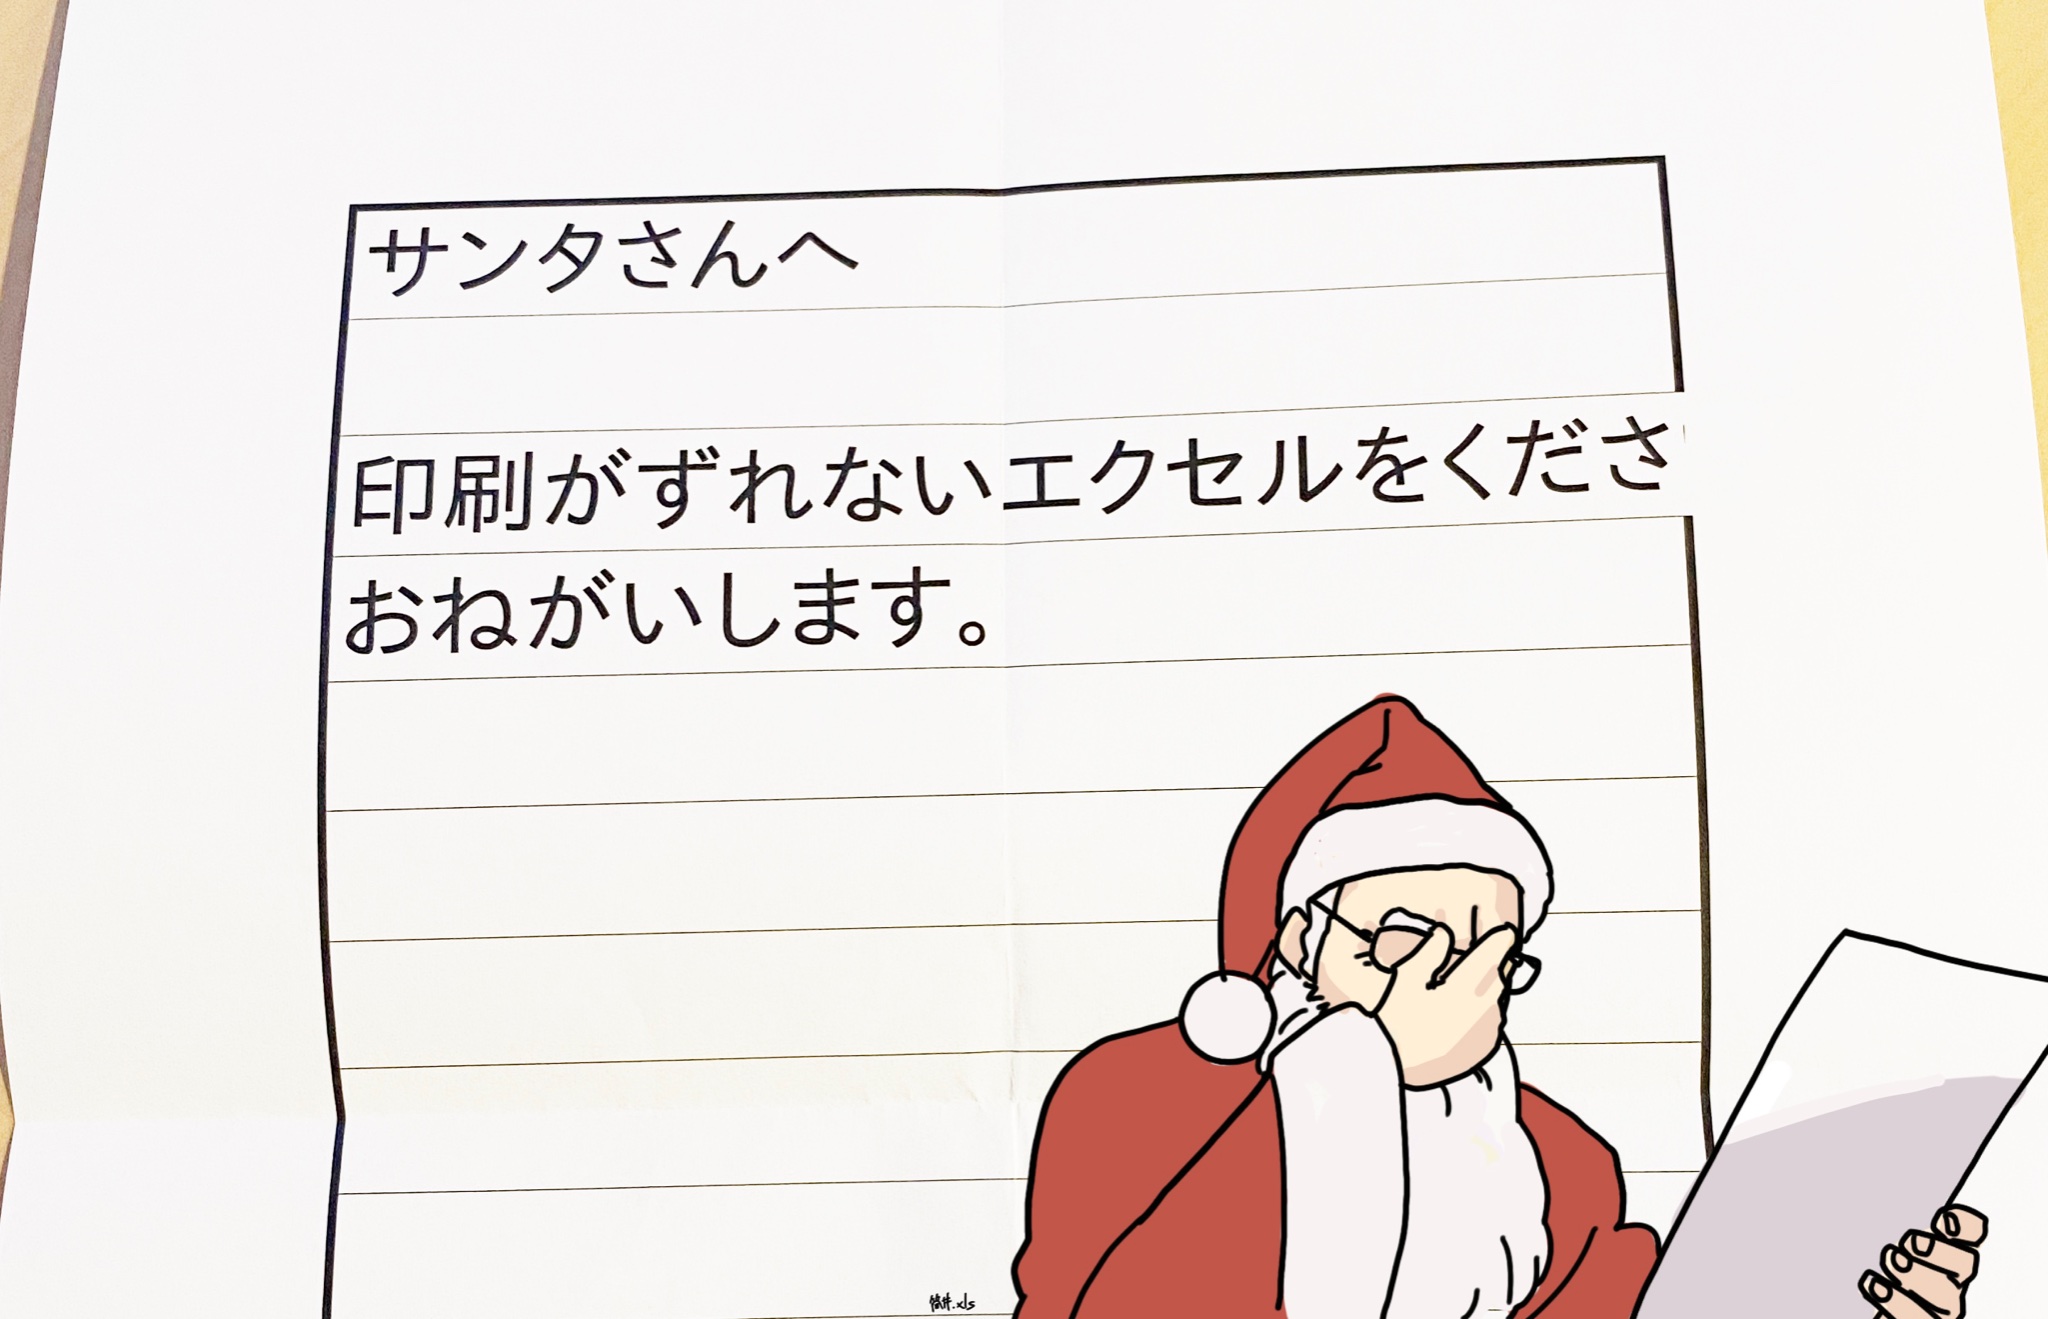 サンタさんへ
印刷がずれないエクセルをくださ
おねがいします。
筒井.xls